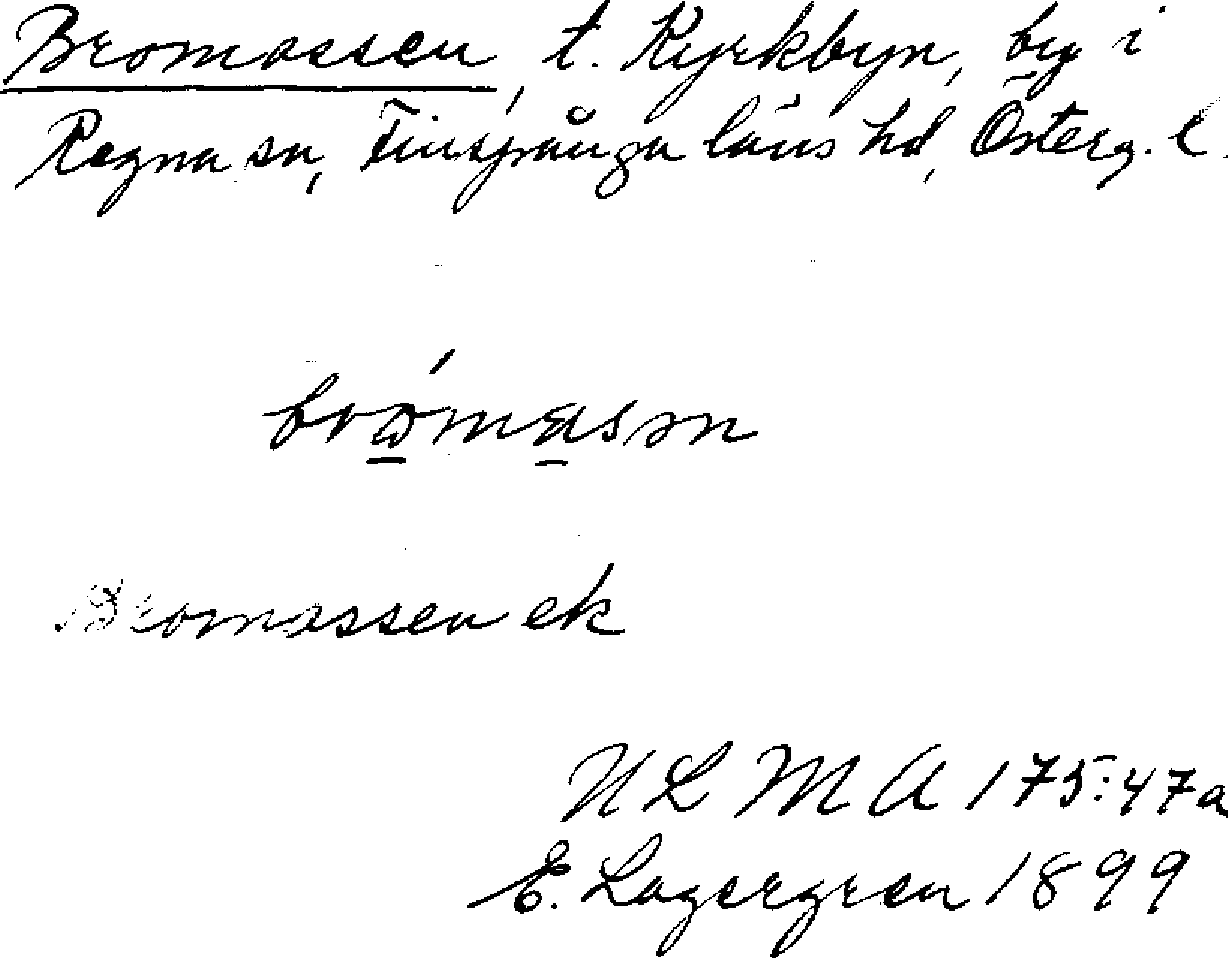 Bromossen, t. Kyrkbyn, by i
Regna sn, Finspånga läns hd, Österg. l.
Bromossen ek
ULMA 175:47a
E. Lagergren 1899